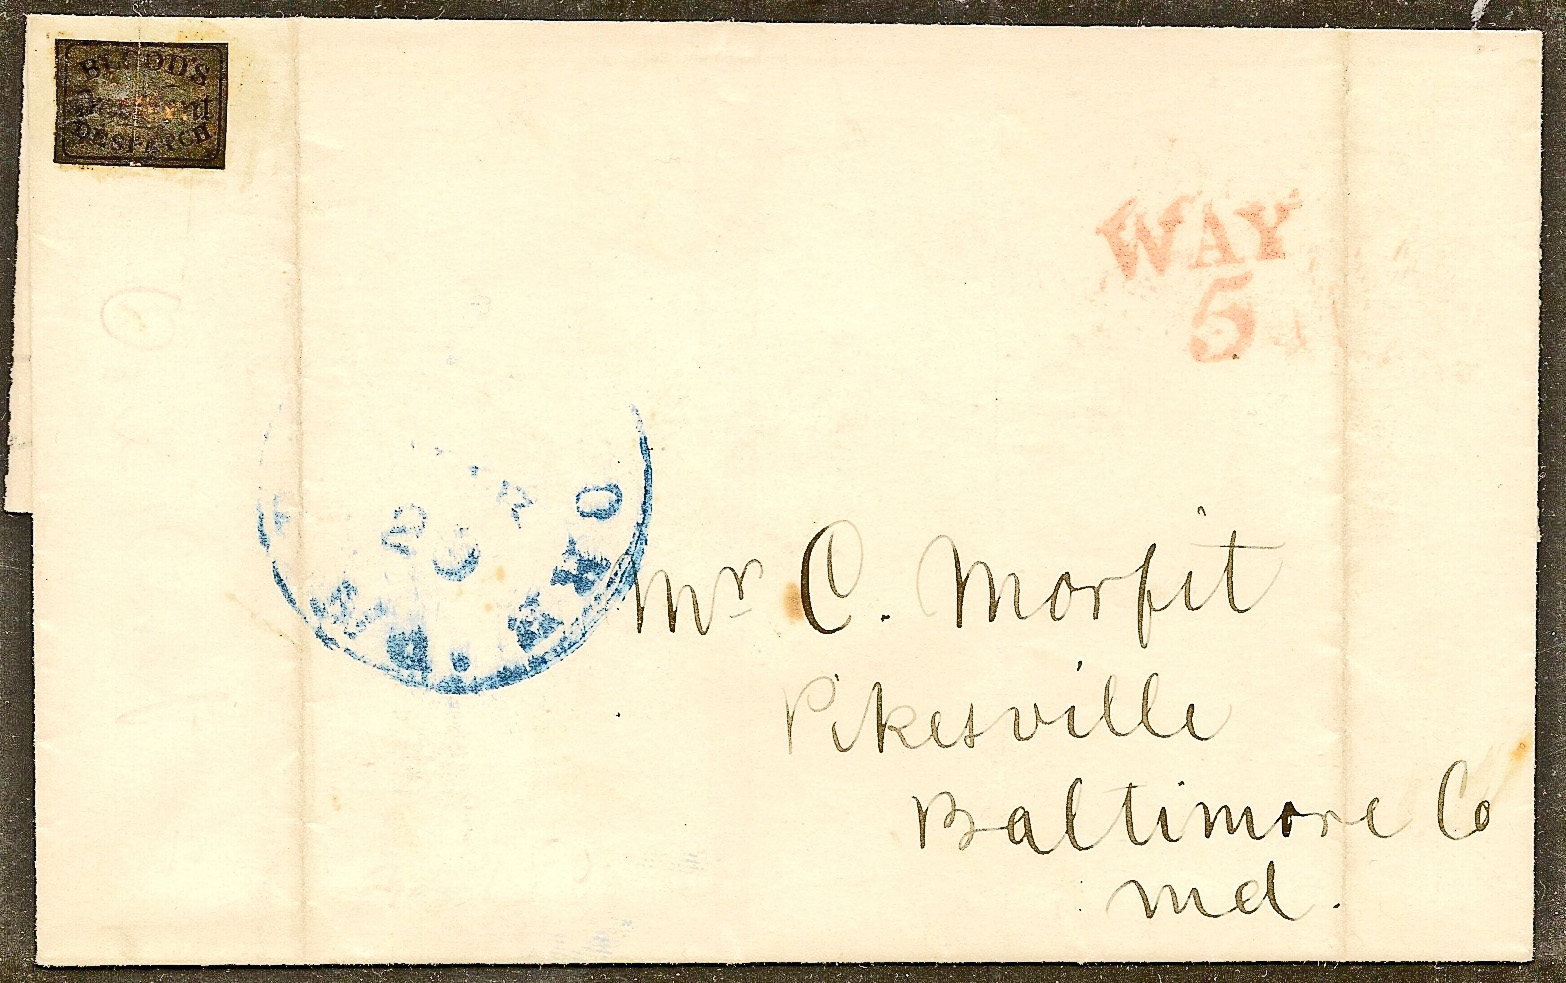 BLOOD'S
DESPATCH
WAY
5
Mr C. Morfit
Pikesville
Baltimore Co
Md.